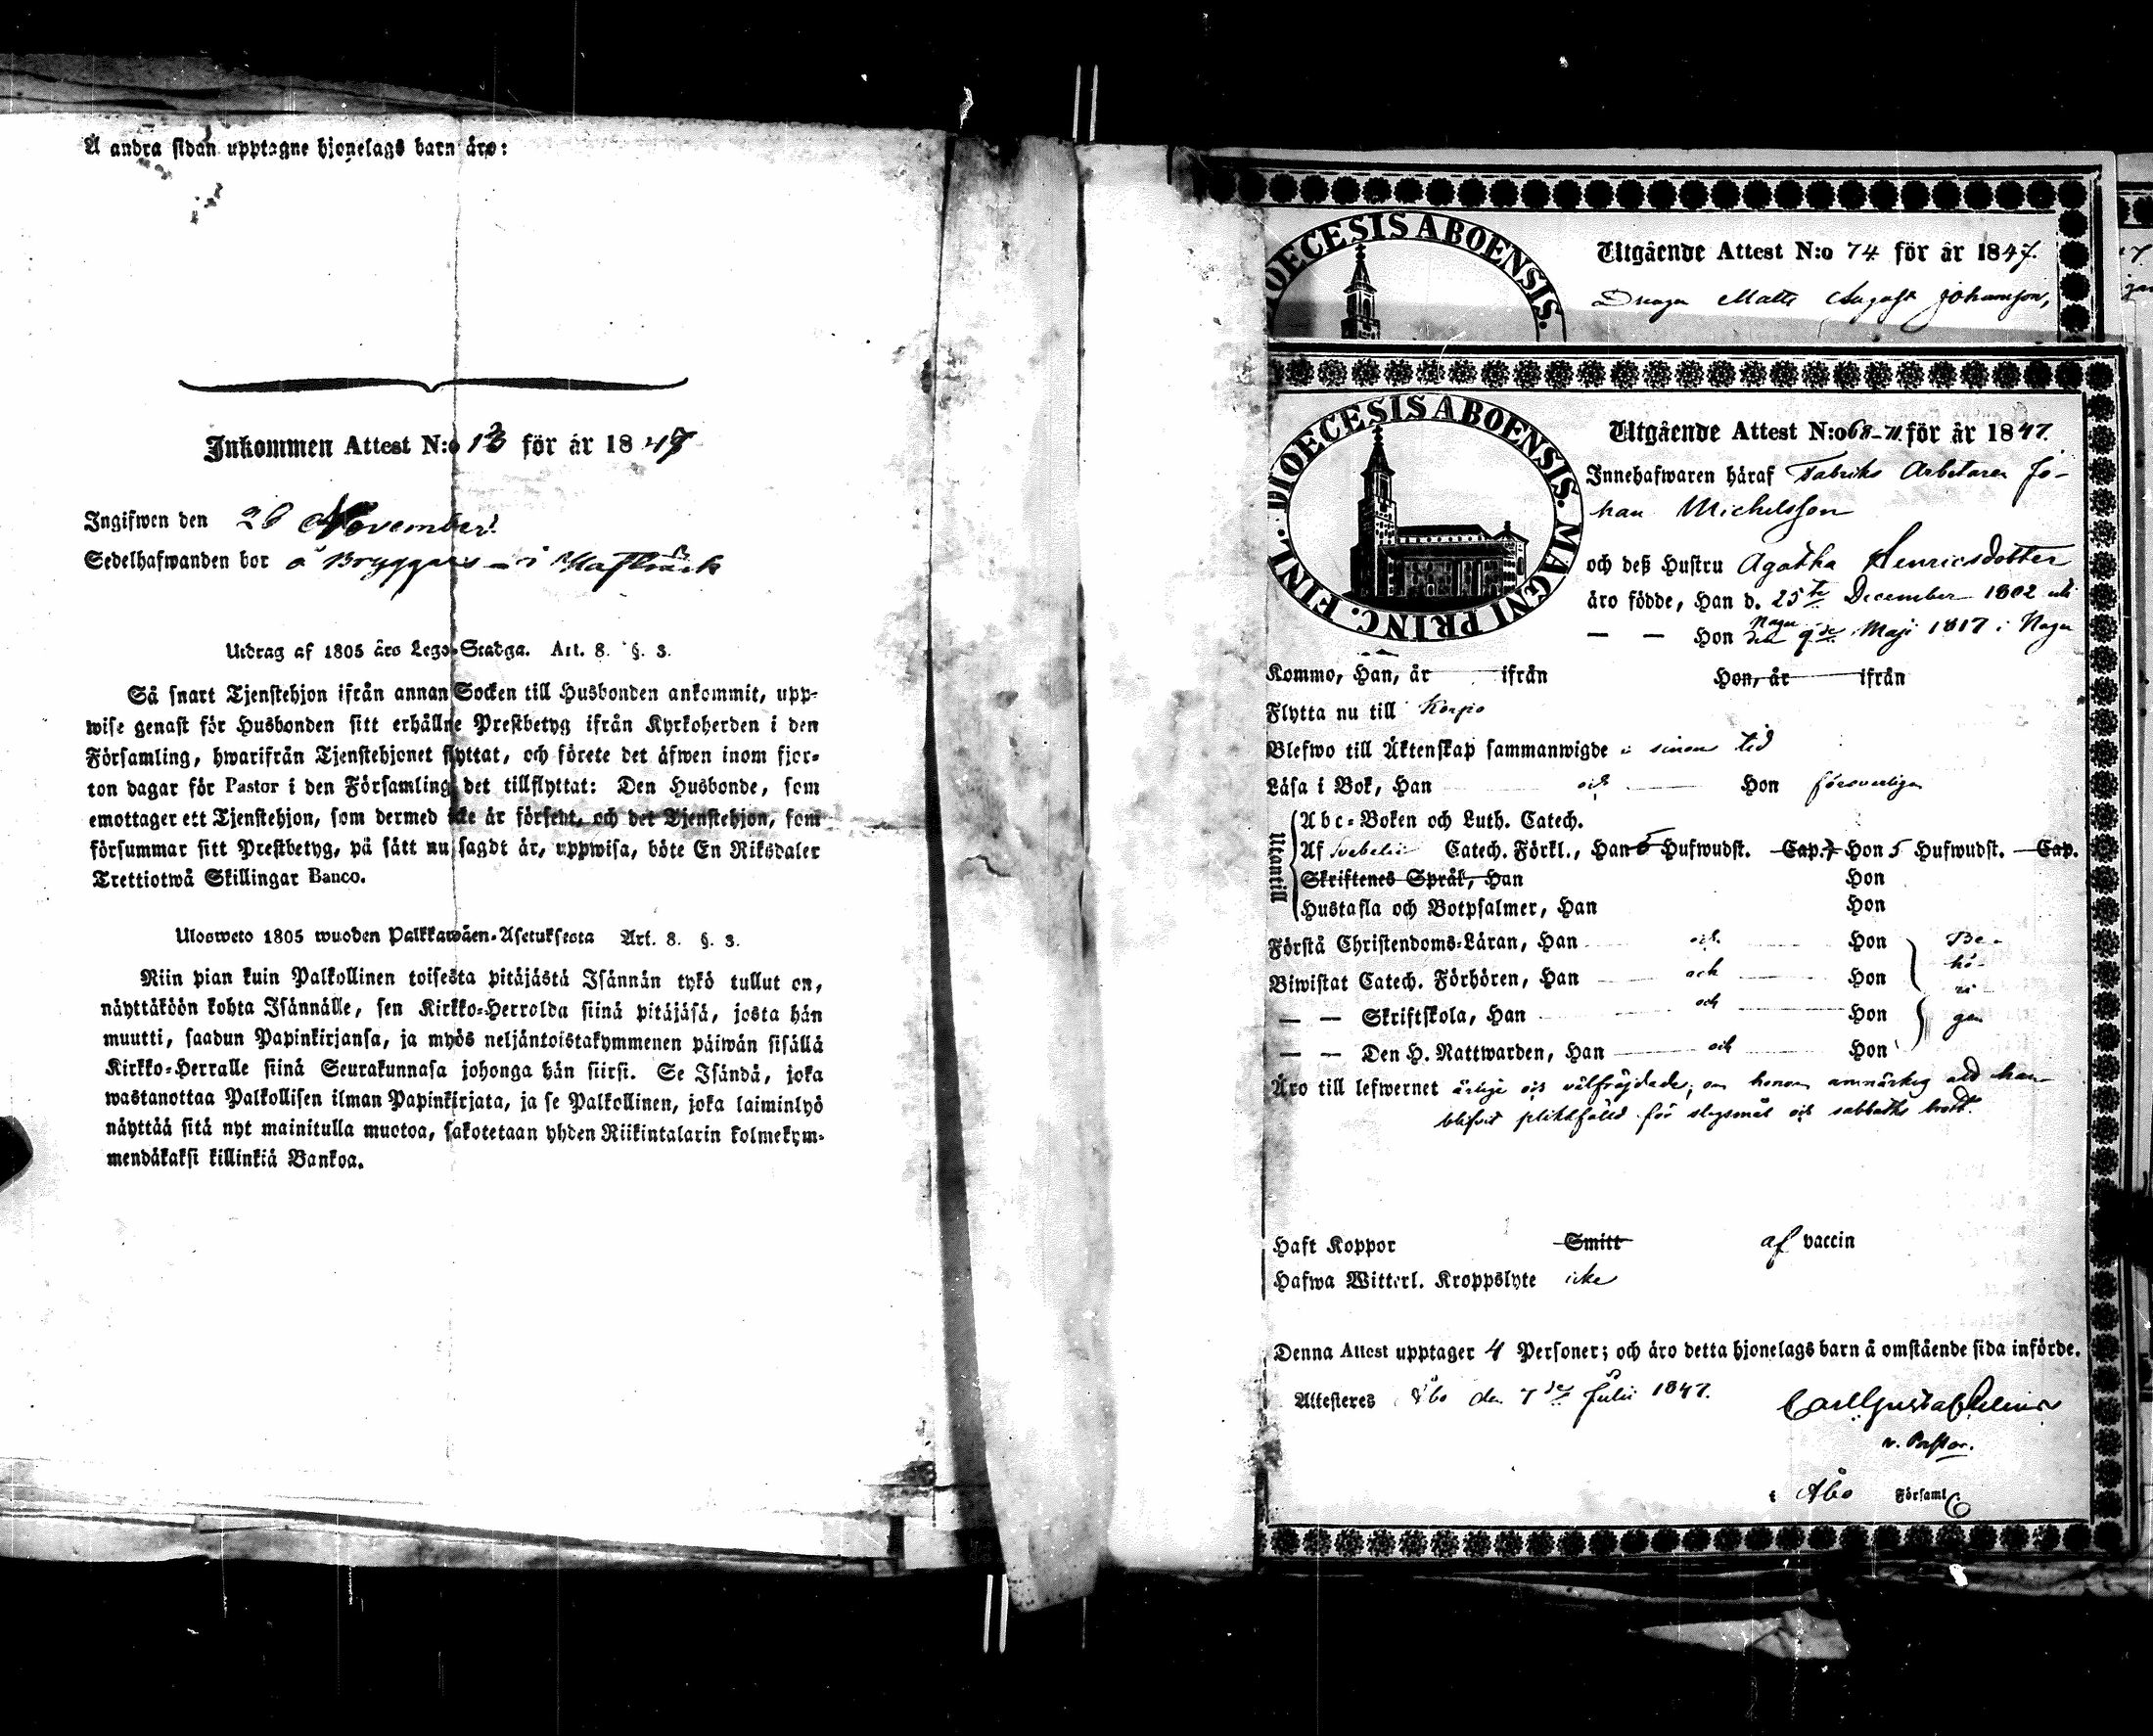 Å andra sidan upptagne hjonelags barn äro:
Inkommen Attest N:o 13 för år 1847
Ingifwen den 26 November
Sedelhafwanden bor å Bryggars - i
Utdrag af 1805 års Lego-Stadga. Art. 8. §. 3.
Så snart Tjenstehjon ifrån annan Socken till Husbonden ankommit, upp-
wise genast för Husbonden sitt erhållne Prestbetyg ifrån Kyrkoherden i den
Församling, hwarifrån Tjenstehjonet flyttat, och förete det äfwen inom fjor-
ton dagar för Pastor i den Församling det tillflyttat: Den Husbonde, som
emottager ett Tjenstehjon, som dermed icke är försedt, och det Tjenstehjon, som
försummar sitt Prestbetyg, på sätt nu sagdt är, uppwisa, böte En Riksdaler
Trettiotwå Skillingar Banco.
Ulosweto 1805 wuoden Palkkawäen-Asetuksesta Art. 8. §. 3.
Niin pian kuin Palkollinen toisesta pitäjästä Isännän tykö tullut on,
näyttäköön kohta Isännälle, sen Kirkko-Herrolda siinä pitäjäsä, josta hän
muutti, saadun Papinkirjansa, ja myös neljäntoistakymmenen päiwän sisällä
Kirkko-Herralle siinä Seurakunnasa johonga hän siirsi. Se Isändä, joka
wastanottaa Palkollisen ilman Papinkirjata, ja se Palkollinen, joka laiminlyö
näyttää sitä nyt mainitulla muotoa, sakotetaan yhden Riikintalarin kolmekym-
mendäkaksi killinkiä Bankoa.
DIOECESIS ABOENSIS.
Utgående Attest N:o 74 för år 1847.
Matts August Johansson,
DIOECESIS ABOENSIS. MAGNI PRINC. FINL.
Utgående Attest N:o 68-71. för år 1847.
Innehafwaren häraf Fabriks Arbetaren Jo-
han Michelsson
och deß Hustru Agatha Henricsdotter
äro födde, Han d. 25te December 1802 uti
Nagu
— — Hon den 9de Maji 1817 i Nagu
Kommo, Han, år ifrån Hon, år ifrån
Flytta nu till Korpo
Blefwo till Äktenskap sammanwigde i sinom tid
Läsa i Bok, Han och Hon försvarligen
Utantill
Abc-Boken och Luth. Catech.
Af Svebelii Catech. Förkl., Han 5 Hufwudst. Cap. Hon 5 Hufwudst. Cap.
Skriftenes Språk, Han Hon
Hustafla och Botpsalmer, Han Hon
Förstå Christendoms-Läran, Han och Hon Be-
Biwistat Catech. Förhören, Han och Hon hö-
— — Skriftskola, Han och Hon ri-
gen
— — Den H. Nattwarden, Han och Hon
Äro till lefwernet ärlige och välfräjdade; om honom anmärkes att han
blifvit pliktfälld för slagsmål och sabbaths brott.
Haft Koppor Smitt af vaccin
Hafwa Witterl. Kroppslyte icke
Denna Attest upptager 4 Personer; och äro detta hjonelags barn å omstående sida införde.
Attesteres Åbo den 7de Julii 1847.
Carl Gustaf
v. Pastor.
i Åbo Församl